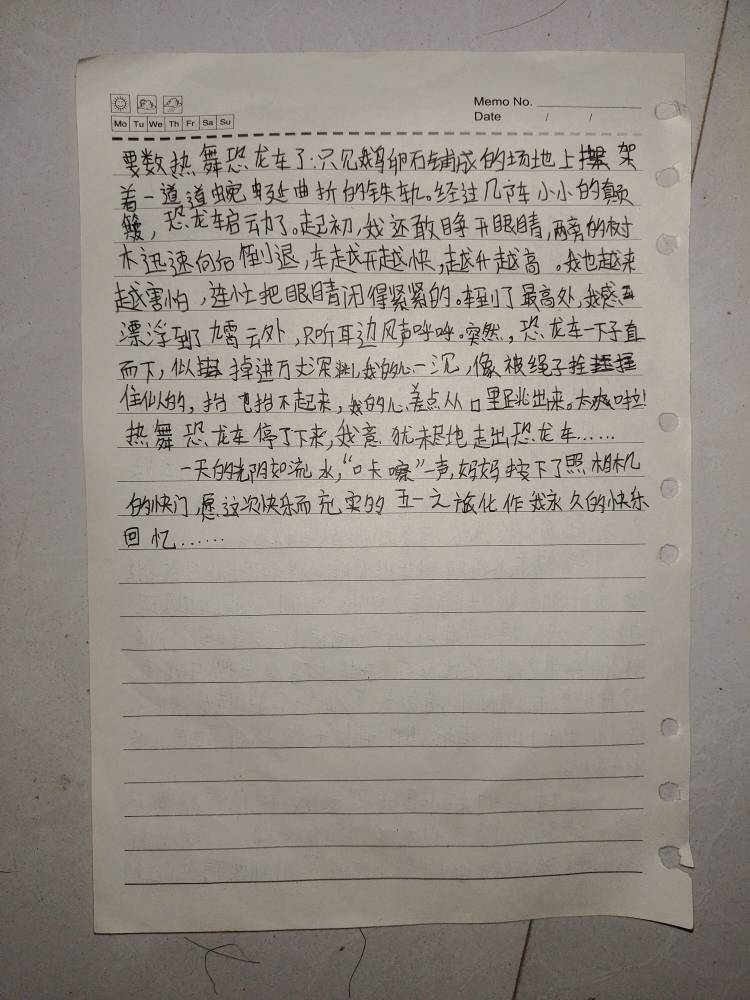 Memo No.
Mo Tu We Th Fr Sa Su
Date / /
要数热舞恐龙车了:只见鹅卵石铺成的场地上架
着一道道蜿蜒曲折的铁轨。经过几阵小小的颠
簸,恐龙车启动了。起初,我还敢睁开眼睛,两旁的树
木迅速向后倒退,车越开越快,越升越高。我也越来
越害怕,连忙把眼睛闭得紧紧的。车到了最高处,我感
漂浮到了九霄云外,只听耳边风声呼呼。突然,恐龙车一下子直
而下,似掉进万丈深渊,我的心一沉,像被绳子拴
住似的,抬也抬不起来,我的心差点从口里跳出来。太爽啦!
热舞恐龙车停了下来,我意犹未尽地走出恐龙车……
一天的光阴如流水,“咔嚓”一声,妈妈按下了照相机
的快门,愿这次快乐而充实的五一之旅化作我永久的快乐
回忆……